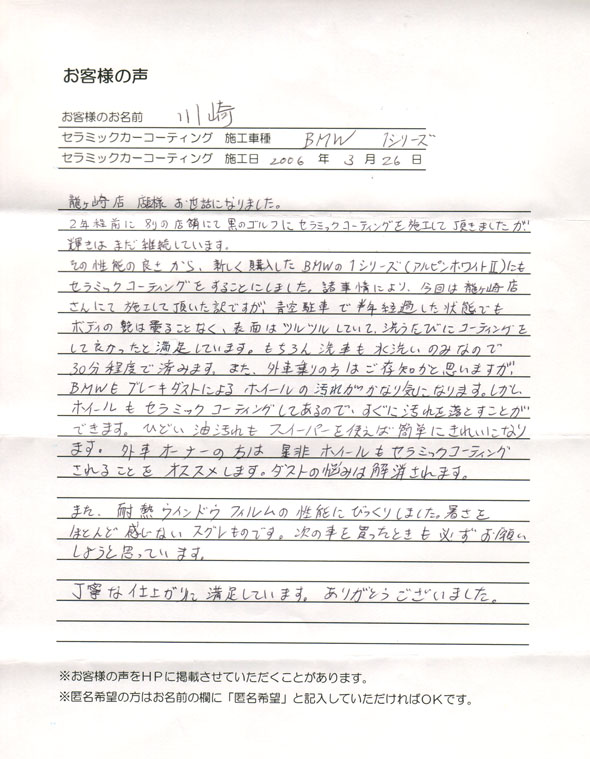 お客様の声
お客様のお名前 川崎
セラミックカーコーティング 施工車種 BMW 1シリーズ
セラミックカーコーティング 施工日 2006 年 3 月 26 日
龍ヶ崎店 店様 お世話になりました。
2年程前に別の店舗にて黒のゴルフにセラミックコーティングを施工して頂きましたが、
輝きはまだ継続しています。
その性能の良さから、新しく購入したBMWの1シリーズ(アルピンホワイトⅡ)にも
セラミックコーティングをすることにしました。諸事情により、今回は龍ヶ崎店
さんにて施工して頂いた訳ですが、青空駐車で半年経過した状態でも
ボディの艶は衰ることなく、表面はツルツルしていて、洗うたびにコーティングを
して良かったと満足しています。もちろん洗車も水洗いのみなので
30分程度で済みます。また、外車乗りの方はご存知かと思いますが、
BMWもブレーキダストによるホイールの汚れがかなり気になります。しかし
ホイールもセラミックコーティングしてあるので、すぐに汚れを落とすことが
できます。ひどい油汚れもスイーパーを使えば簡単にきれいになり
ます。外車オーナーの方は是非ホイールもセラミックコーティング
されることをオススメします。ダストの悩みは解消されます。
また、耐熱ウインドウフィルムの性能にびっくりしました。暑さを
ほとんど感じないスグレものです。次の車を買ったときも必ずお願い
しようと思っています。
丁寧な仕上がりに満足しています。ありがとうございました。
※お客様の声をHPに掲載させていただくことがあります。
※匿名希望の方はお名前の欄に「匿名希望」と記入していただければOKです。